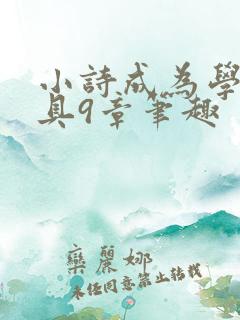 小詩成為學
具9章筆趣
欒麗娜
未经同意禁止转载